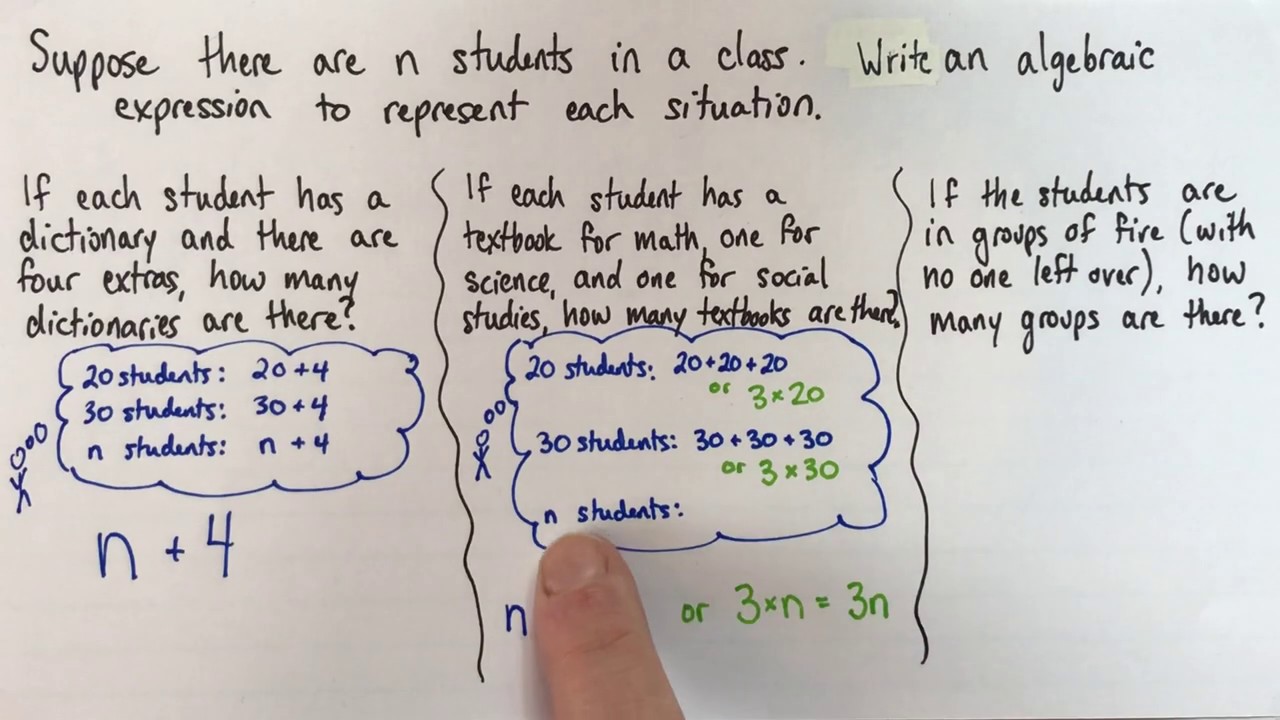 Suppose there are n students in a class. Write an algebraic
expression to represent each situation.
If each student has a
dictionary and there are
four extras, how many
dictionaries are there?
20 students: 20 + 4
30 students: 30 + 4
n students: n + 4
n + 4
If each student has a
textbook for math, one for
science, and one for social
studies, how many textbooks are there?
20 students: 20 + 20 + 20
or 3 × 20
30 students: 30 + 30 + 30
or 3 × 30
n students:
n
or 3 × n = 3n
If the students are
in groups of five (with
no one left over), how
many groups are there?